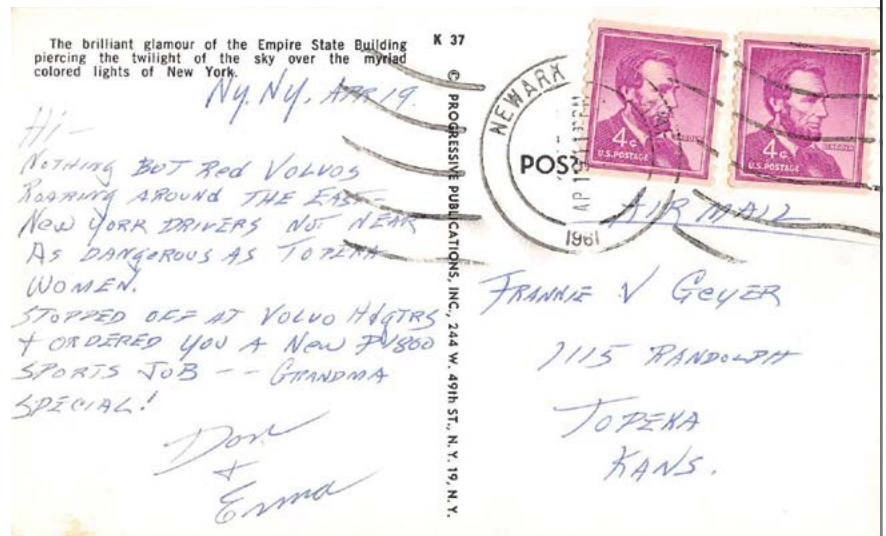 The brilliant glamour of the Empire State Building
piercing the twilight of the sky over the myriad
colored lights of New York.
K 37
NY. NY. APR 19.
Hi —
NOTHING BUT Red VOLVOS
ROARING AROUND THE EAST —
New YORK DRIVERS NOT NEAR
AS DANGEROUS AS TOPEKA
WOMEN.
STOPPED OFF AT VOLVO HdQTRS
+ ORDERED YOU A New PV860
SPORTS JOB -- GRANDMA
SPECIAL!
Don
+
Erma
© PROGRESSIVE PUBLICATIONS, INC., 244 W. 49th ST., N. Y. 19, N. Y.
NEWARK
1961
4c
U.S. POSTAGE
LINCOLN
4c
U.S. POSTAGE
LINCOLN
AIR MAIL
FRANNIE V GEYER
1115 RANDOLPH
TOPEKA
KANS.